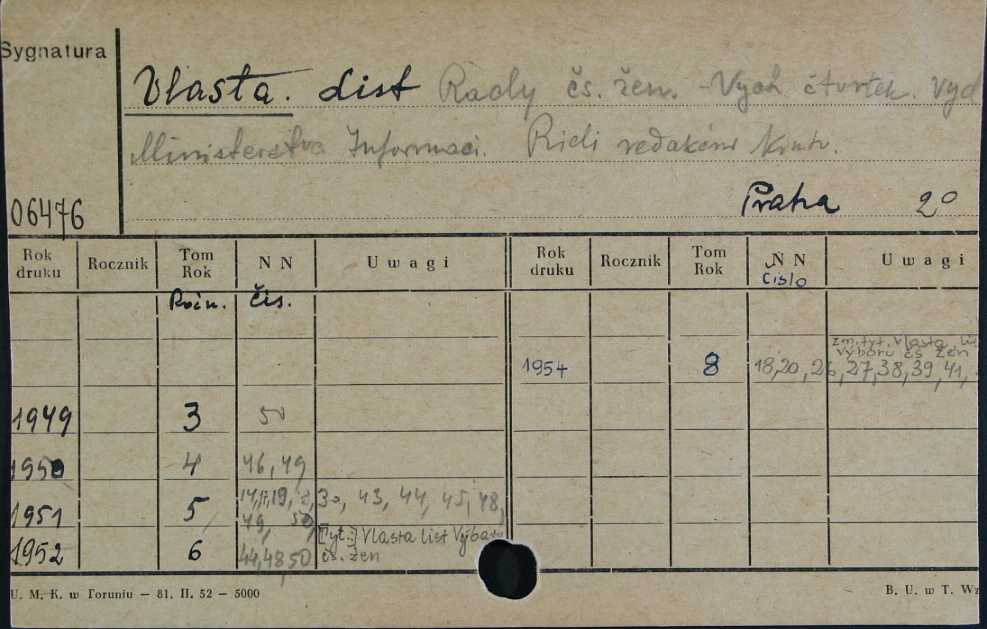 Sygnatura
Vlasta. List Rady čs. žen. - Vych. čtvrtek. Vyd
Ministerstvo Informaci. Řídí redakční kruh.
06476
Praha 2°
Rok druku Rocznik Tom Rok N N Uwagi Rok druku Rocznik Tom Rok N N Uwagi
Ročn. čís. Cislo
zm. tyt. Vlasta. li
výboru čs žen
1954 8 18,20,26,27,38,39,41,
1949 3 50
1950 4 46,49
1951 5 30, 43, 44, 45, 48,
49, 50,
1952 6 44,48,50 [Tyt.:] Vlasta list Výboru
čs. žen
U. M. K. w Toruniu — 81. II. 52 — 5000 B. U. w T. Wz